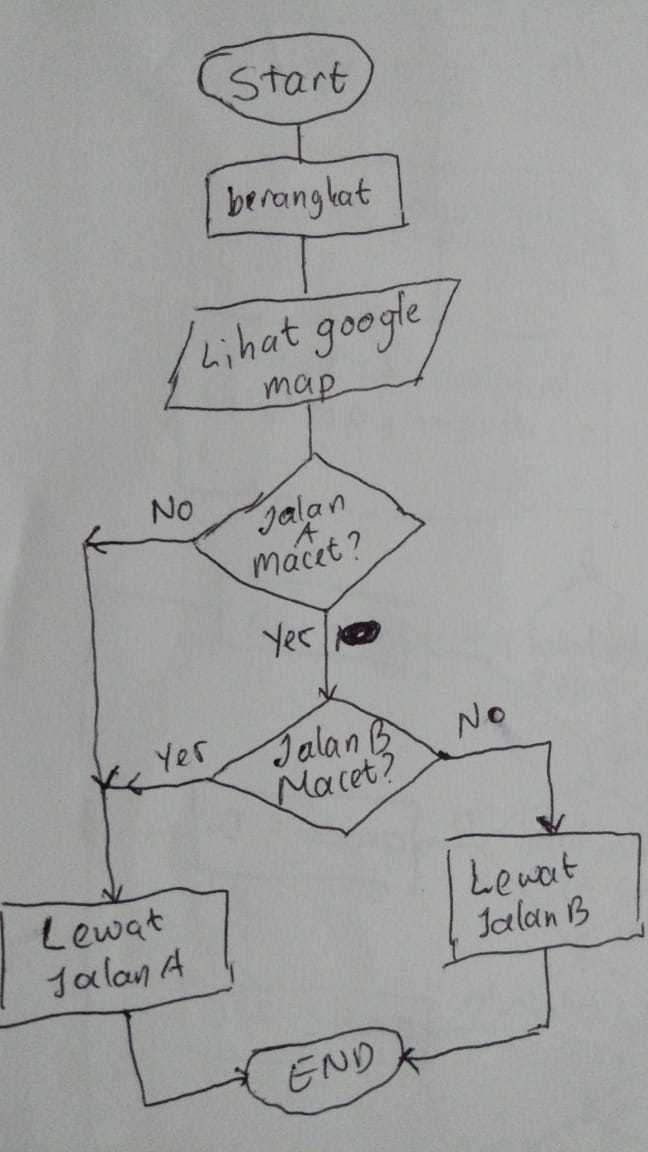 Start
berangkat
Lihat google
map
No
Jalan
A
macet?
Yes
Jalan B
Macet?
Yes
No
Lewat
Jalan A
Lewat
Jalan B
END